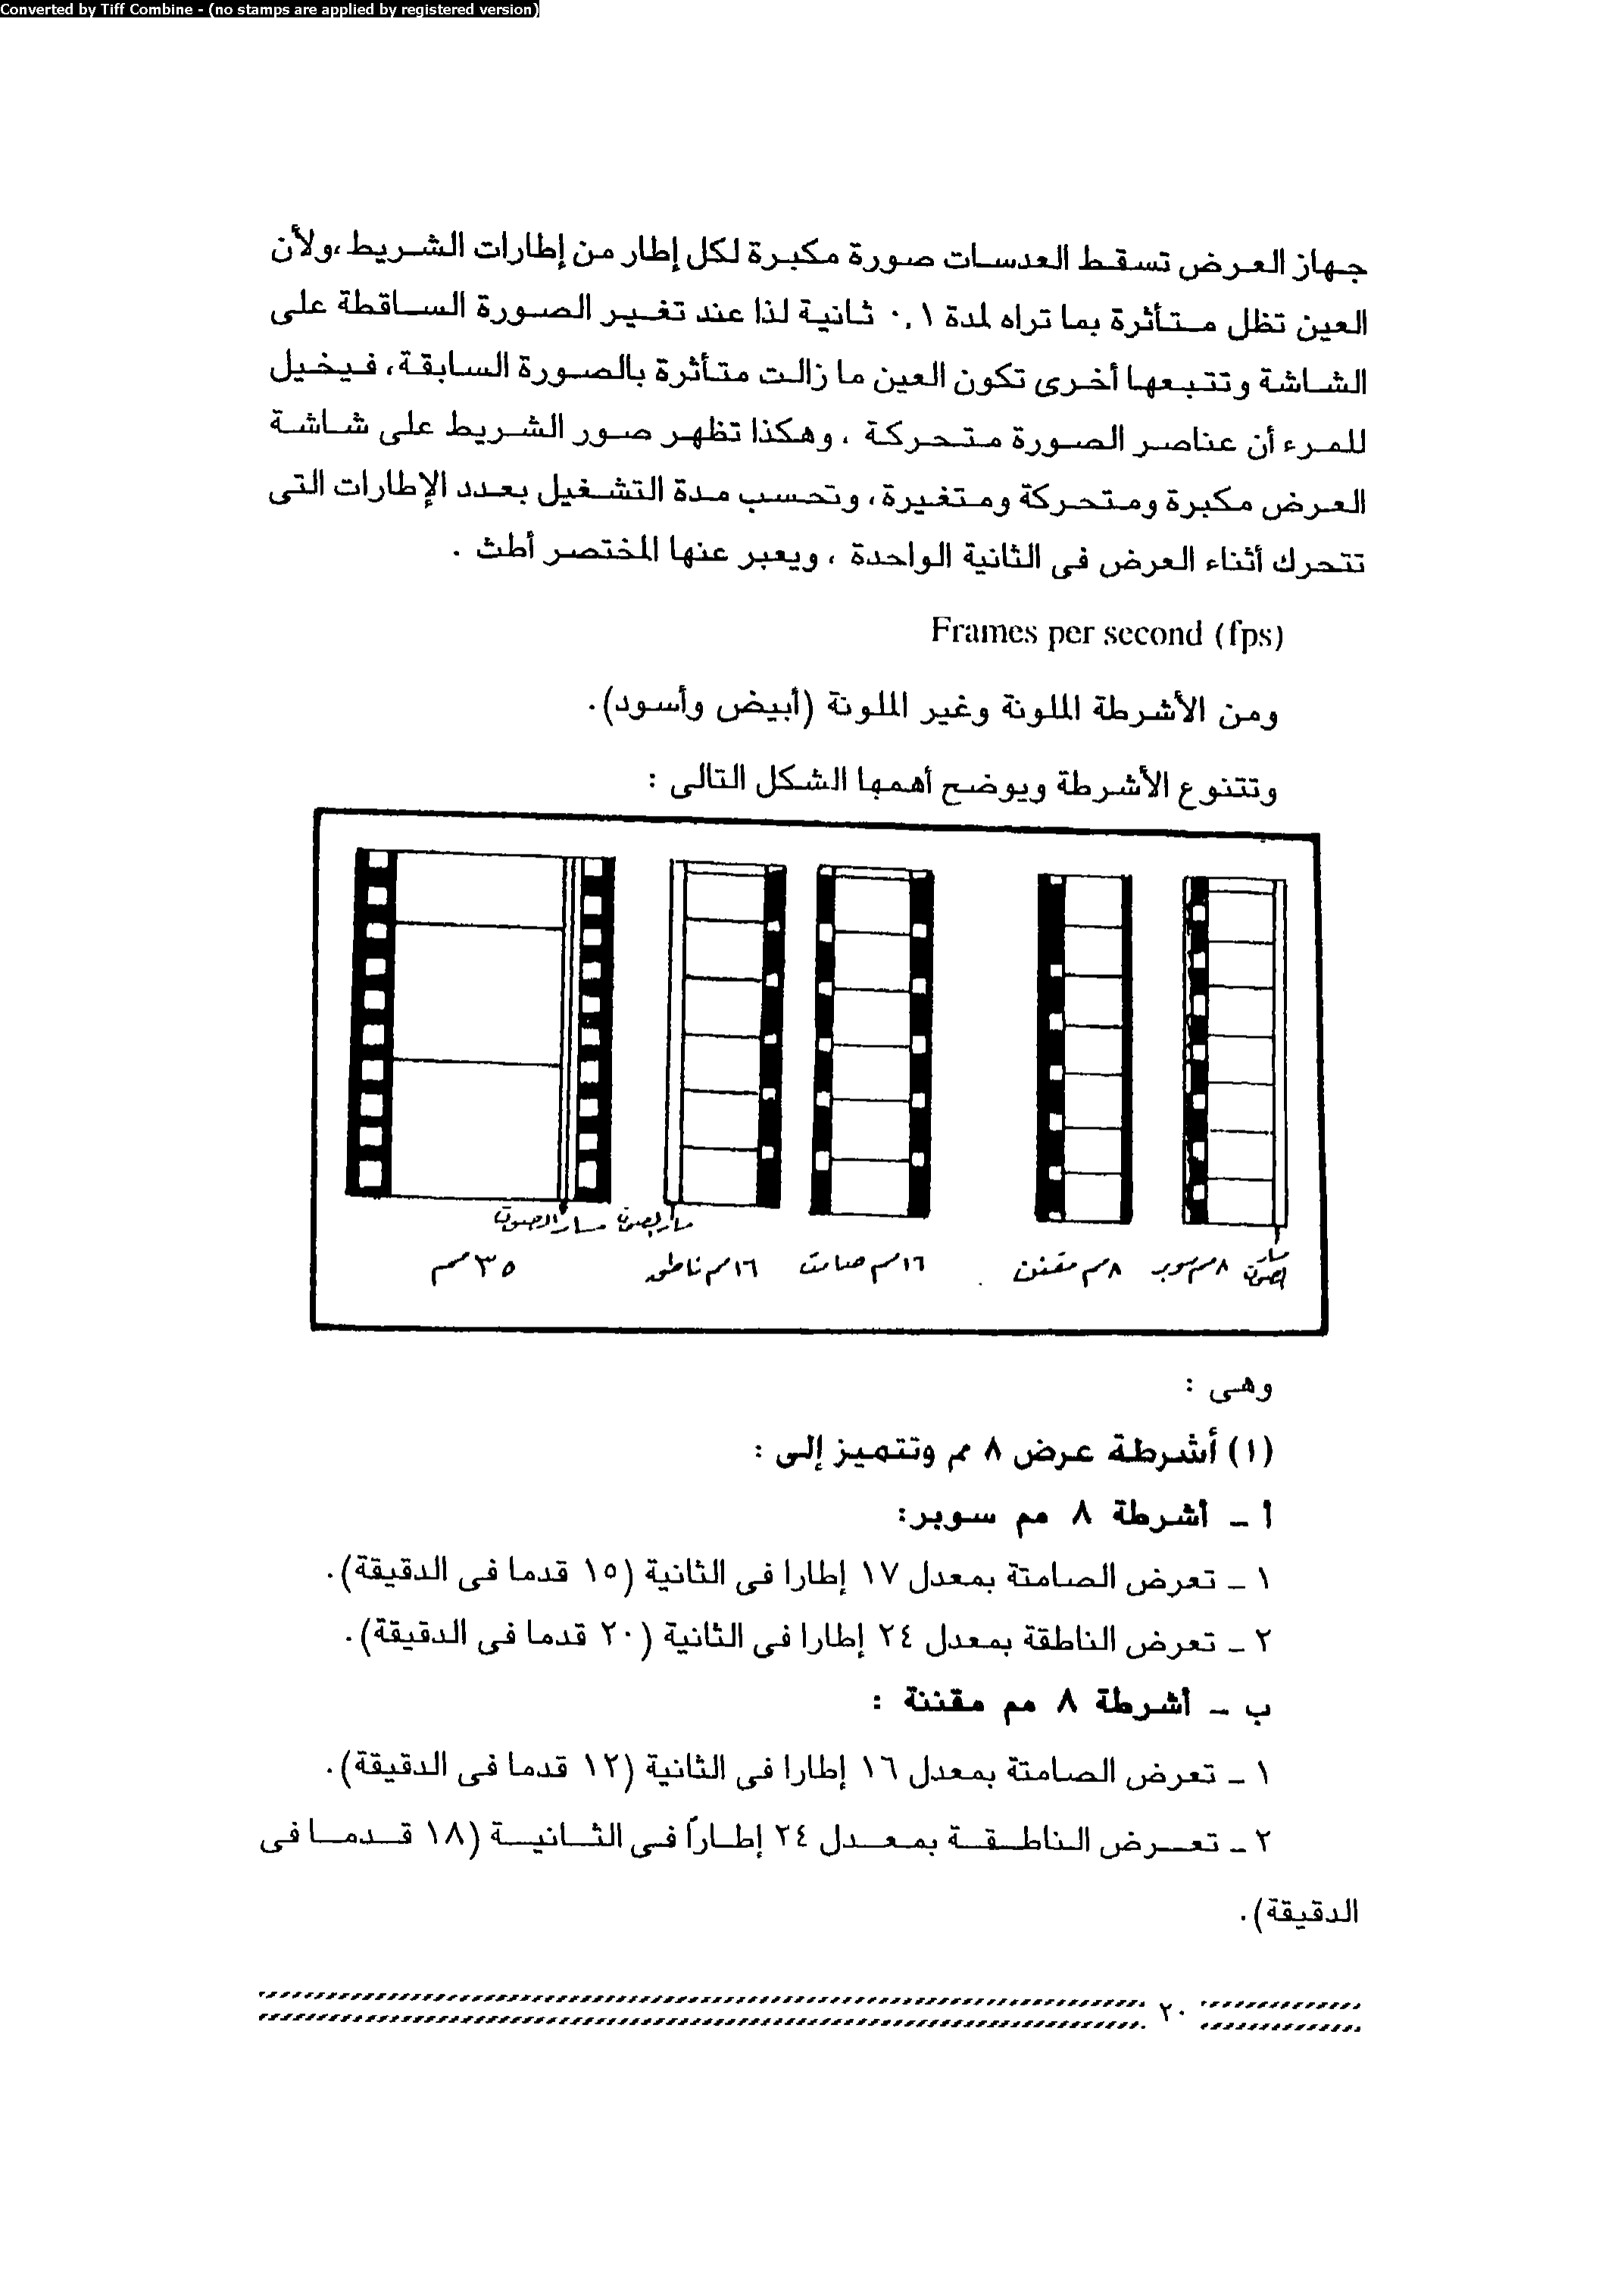 Converted by Tiff Combine - (no stamps are applied by registered version)
جهاز العرض تسقط العدسات صورة مكبرة لكل إطار من إطارات الشريط،ولأن
العين تظل متأثرة بما تراه لمدة ٠,١ ثانية لذا عند تغير الصورة الساقطة على
الشاشة وتتبعها أخرى تكون العين ما زالت متأثرة بالصورة السابقة، فيخيل
للمرء أن عناصر الصورة متحركة ، وهكذا تظهر صور الشريط على شاشة
العرض مكبرة ومتحركة ومتغيرة، وتحسب مدة التشغيل بعدد الإطارات التى
تتحرك أثناء العرض فى الثانية الواحدة ، ويعبر عنها المختصر أطث .
Frames per second (fps)
ومن الأشرطة الملونة وغير الملونة (أبيض وأسود).
وتتنوع الأشرطة ويوضح أهمها الشكل التالى :
مسار الصوت
مسار الصوت
مسار الصوت
٨مم سوبر
٨مم مقنن
١٦مم صامت
١٦مم ناطق
٣٥مم
وهى :
(١) أشرطة عرض ٨ مم وتتميز إلى :
أ ـ أشرطة ٨ مم سوبر:
١ ـ تعرض الصامتة بمعدل ١٧ إطارا فى الثانية (١٥ قدما فى الدقيقة).
٢ ـ تعرض الناطقة بمعدل ٢٤ إطارا فى الثانية (٢٠ قدما فى الدقيقة).
ب ـ أشرطة ٨ مم مقننة :
١ ـ تعرض الصامتة بمعدل ١٦ إطارا فى الثانية (١٢ قدما فى الدقيقة).
٢ ـ تعرض الناطقة بمعدل ٢٤ إطاراً فى الثانية (١٨ قدما فى
الدقيقة).
٢٠